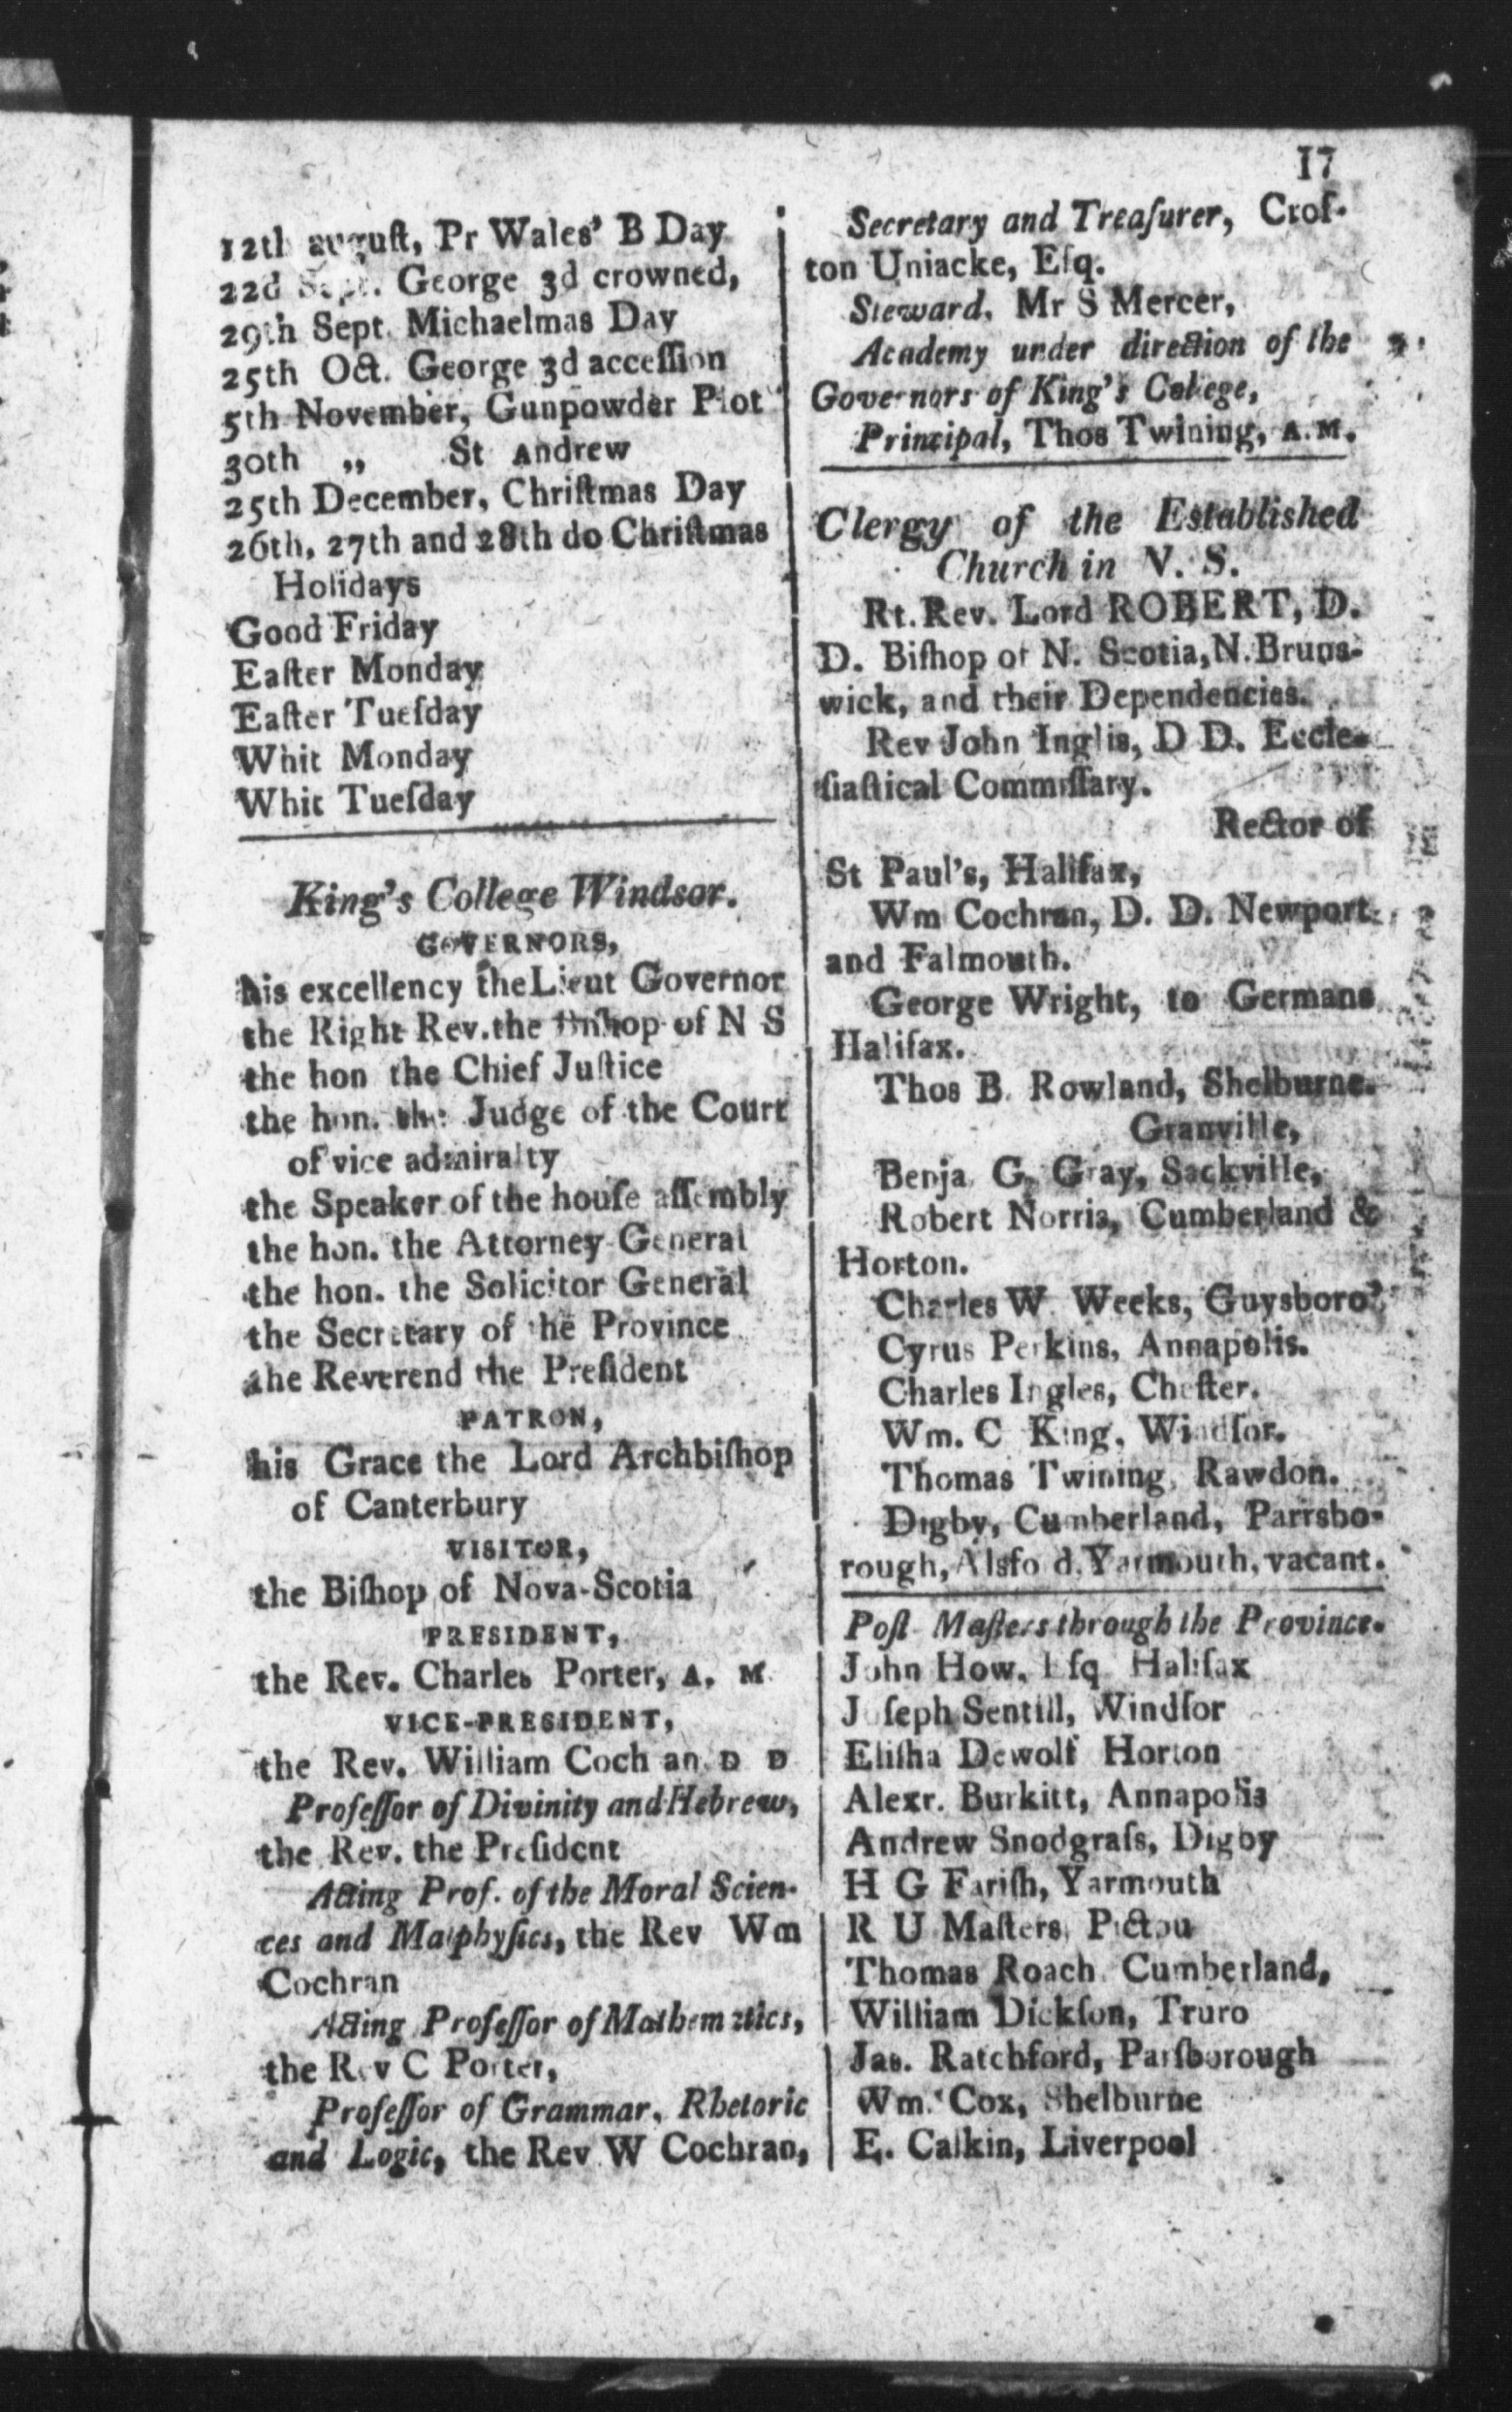 17
12th august, Pr Wales' B Day
22d Sept. George 3d crowned,
29th Sept. Michaelmas Day
25th Oct. George 3d acceſſion
5th November, Gunpowder Plot
30th „ St Andrew
25th December, Chriſtmas Day
26th, 27th and 28th do Chriſtmas
Holidays
Good Friday
Eaſter Monday
Eaſter Tueſday
Whit Monday
Whit Tueſday
King's College Windsor.
GOVERNORS,
his excellency the Lieut Governor
the Right Rev. the Biſhop of N S
the hon the Chief Juſtice
the hon. the Judge of the Court
of vice admiralty
the Speaker of the houſe aſſembly
the hon. the Attorney General
the hon. the Solicitor General
the Secretary of the Province
the Reverend the Preſident
PATRON,
his Grace the Lord Archbiſhop
of Canterbury
VISITOR,
the Biſhop of Nova-Scotia
PRESIDENT,
the Rev. Charles Porter, A. M.
VICE-PRESIDENT,
the Rev. William Coch an D D
Profeſſor of Divinity and Hebrew,
the Rev. the Preſident
Acting Prof. of the Moral Scien-
ces and Matphyſics, the Rev Wm
Cochran
Acting Profeſſor of Mathematics,
the Rev C Porter,
Profeſſor of Grammar, Rhetoric
and Logic, the Rev W Cochran,
Secretary and Treaſurer, Croſ-
ton Uniacke, Eſq.
Steward, Mr S Mercer,
Academy under direction of the
Governors of King's College,
Principal, Thos Twining, A.M.
Clergy of the Established
Church in N. S.
Rt. Rev. Lord ROBERT, D.
D. Biſhop of N. Scotia, N. Bruns-
wick, and their Dependencies.
Rev John Inglis, D D. Eccle-
ſiaſtical Commiſſary.
Rector of
St Paul's, Halifax,
Wm Cochran, D. D. Newport
and Falmouth.
George Wright, to Germans
Halifax.
Thos B. Rowland, Shelburne.
Granville,
Benja G. Gray, Sackville,
Robert Norris, Cumberland &
Horton.
Charles W. Weeks, Guysboro'
Cyrus Perkins, Annapolis.
Charles Ingles, Cheſter.
Wm. C King, Windſor.
Thomas Twining, Rawdon.
Digby, Cumberland, Parrsbo-
rough, Alsfo d, Yarmouth, vacant.
Poſt Maſters through the Province.
John How, Eſq Halifax
Joſeph Sentill, Windſor
Eliſha Dewolf Horton
Alexr. Burkitt, Annapolis
Andrew Snodgraſs, Digby
H G Fariſh, Yarmouth
R U Maſters, Pictou
Thomas Roach Cumberland,
William Dickſon, Truro
Jas. Ratchford, Parſborough
Wm. Cox, Shelburne
E. Calkin, Liverpool